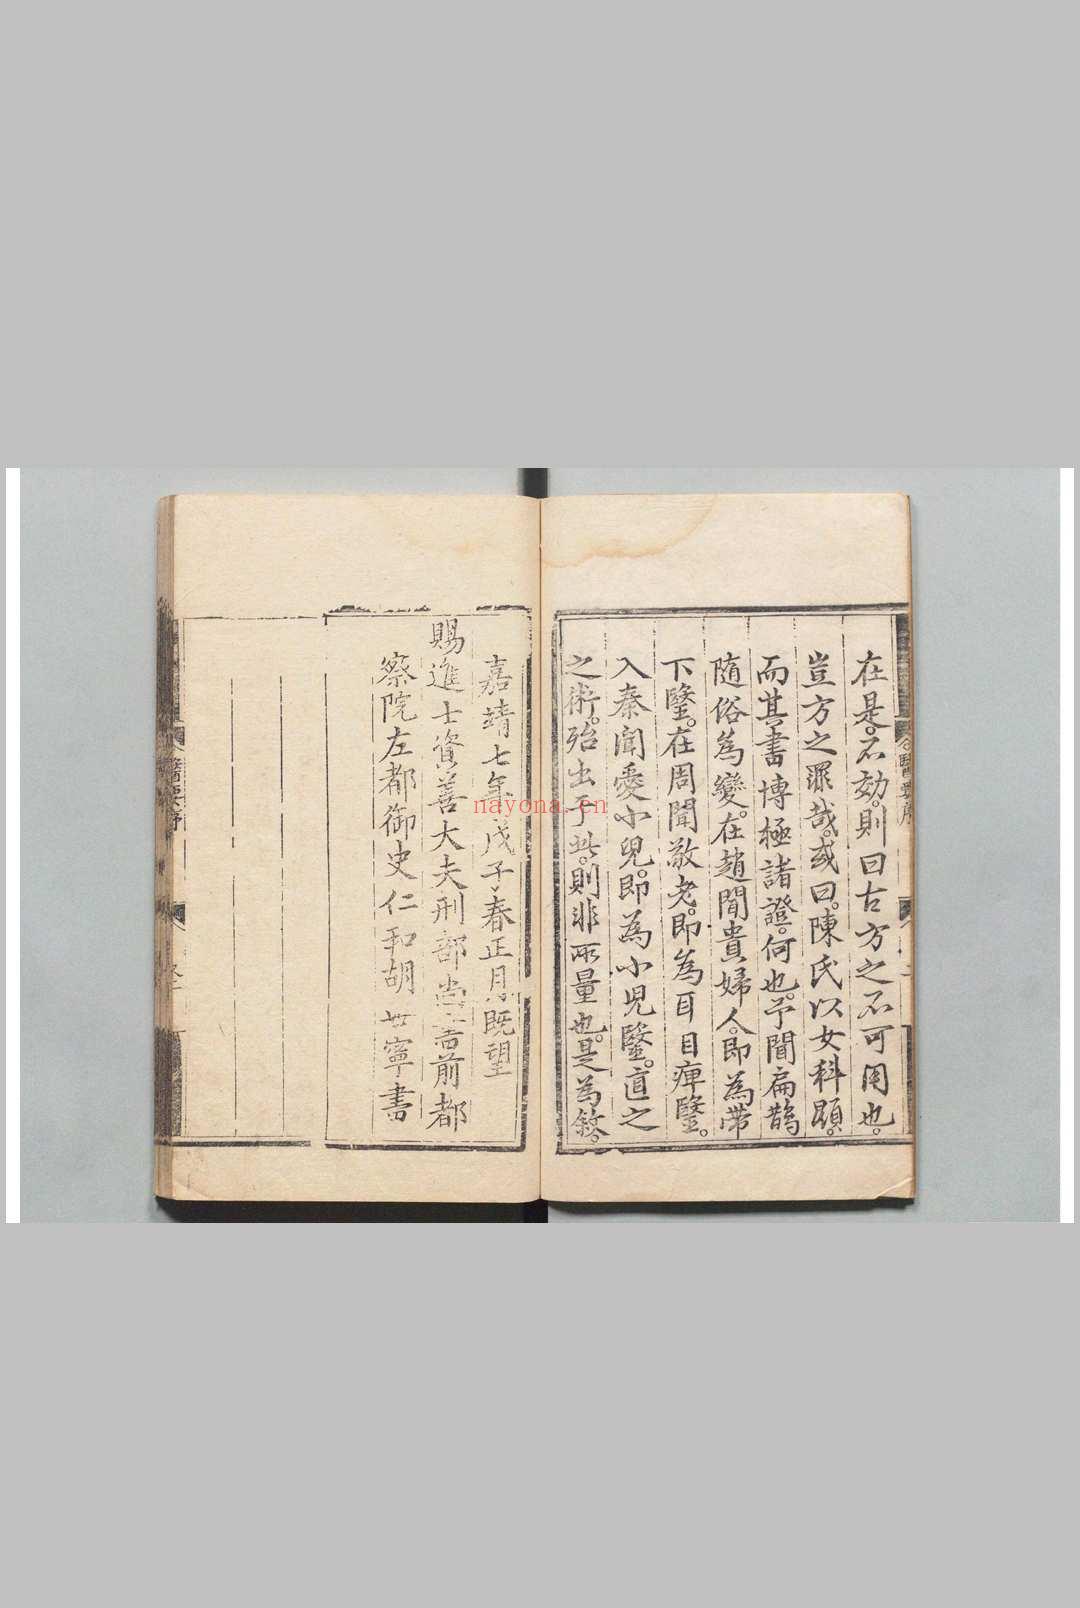 在是不効則曰古方之不可用也
豈方之罪哉或曰陳氏以女科顕
而其書博極諸證何也予聞扁鵲
隨俗為變在趙聞貴婦人即為帶
下毉在周聞敬老即為耳目痺毉
入秦聞愛小兒即為小児毉直之
之術殆出于此則非所量也是為敘
嘉靖七年戊子春正月既望
賜進士資善大夫刑部尚書前都
察院左都御史仁和胡世寧書
nayona.cn